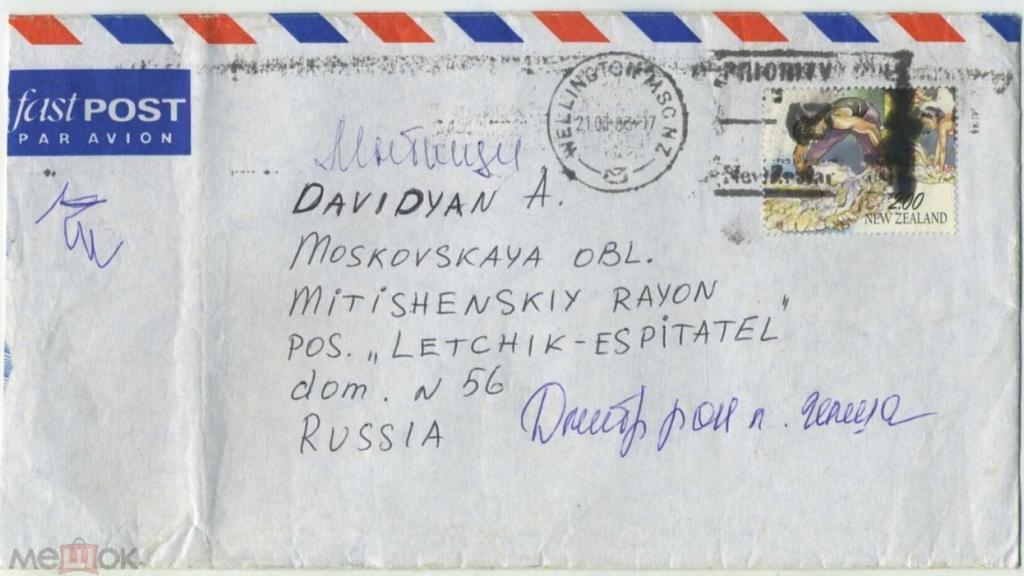 fastPOST
PAR AVION
WELLINGTON MSC N.Z.
PRIORITY
2.00
NEW ZEALAND
Мытищи
DAVIDYAN A.
MOSKOVSKAYA OBL.
MITISHENSKIY RAYON
POS. „LETCHIK-ESPITATEL"
dom. N 56
RUSSIA
Дмитр рон п.
мешок